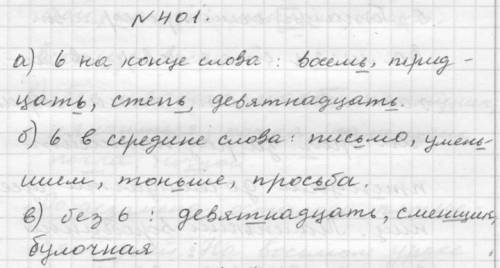 №401.
а) ь на конце слова: восемь, трид-
цать, степь, девятнадцать.
б) ь в середине слова: письмо, умень-
шием, тоньше, просьба.
в) без ь: девятнадцать, сменщик,
булочная